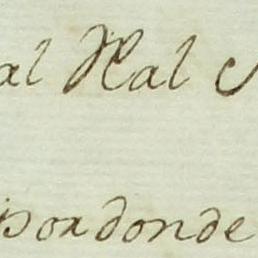 al Xal
por donde